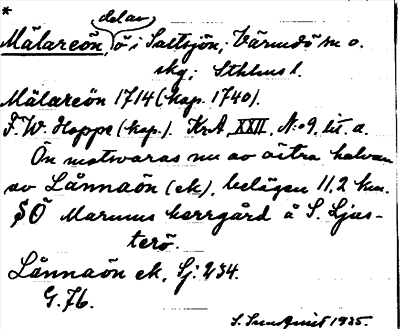 *
del av
Mälareön, ö i Saltsjön; Värmdö sn o.
skg; Sthlms l.
Mälareön 1714 (kop. 1740).
F. W. Hoppe (kop.). KrA, XXII, N:o 9, lit. a.
Ön motsvaras nu av östra halvan
av Lännaön (ek), belägen 11,2 km.
SÖ Marums herrgård å S. Ljus-
terö.
Lännaön ek, Sj: 234.
G. 76.
1935.